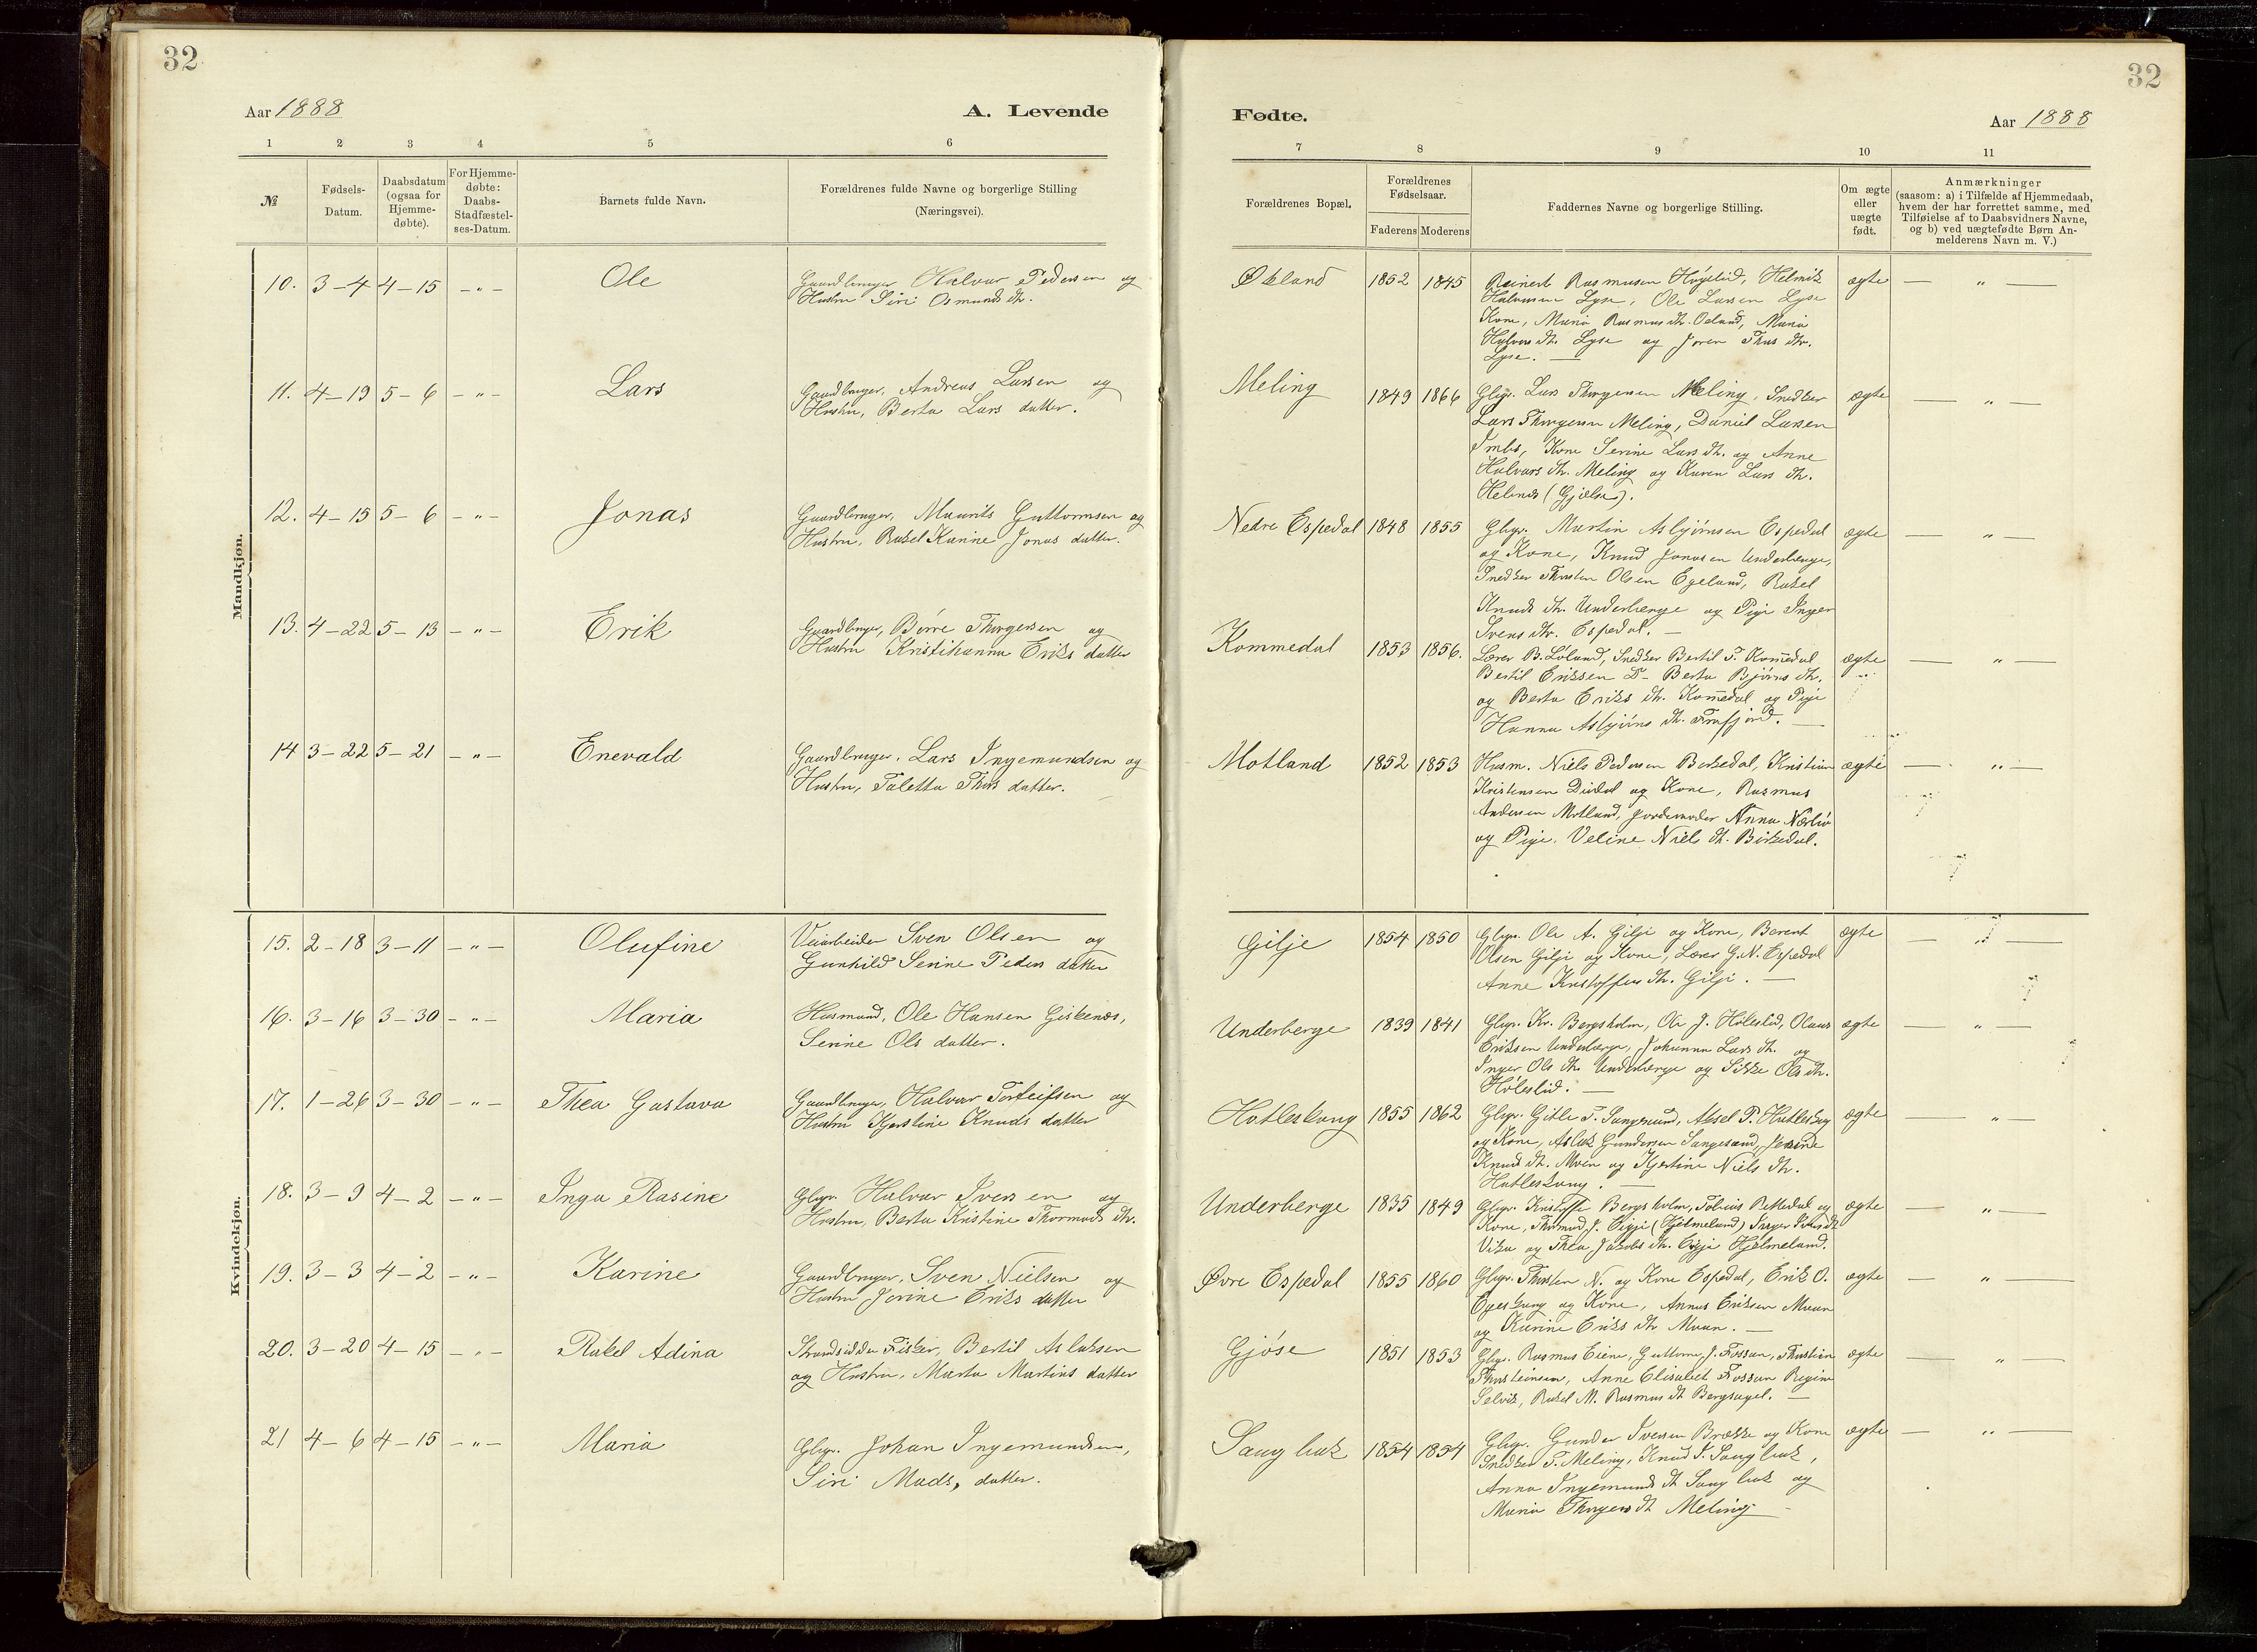 32
Aar 1888
A. Levende
1 2 3 4 5 6
№
Fødsels-Datum.
Daabsdatum (ogsaa for Hjemme-døbte).
For Hjemme-døbte: Daabs-Stadfæstel-ses-Datum.
Barnets fulde Navn.
Forældrenes fulde Navne og borgerlige Stilling
(Næringsvei).
Mandkjøn.
10. 3-4 4-15 -"- Ole Gaardbruger Halvar Pedersen og
Hustru Siri Osmunds dtr.
11. 4-19 5-6 -"- Lars Gaardbruger, Andreas Larsen og
Hustru, Berta Lars datter.
12. 4-15 5-6 -"- Jonas Gaardbruger, Maurits Guttormsen og
Hustru, Rakel Karine Jonas datter.
13. 4-22 5-13 -"- Erik Gaardbruger, Børre Thorgersen og
Hustru Kristihanna Eriks datter
14 3-22 5-21 -"- Enevald Gaardbruger. Lars Ingemundsen og
Hustru, Taletta Thors datter.
Kvindekjøn.
15. 2-18 3-11 -"- Olufine Veiarbeider Sven Olsen og
Gunhild Serine Peders datter
16. 3-16 3-30 -"- Maria Husmand, Ole Hansen Geskenæs,
Serine Ols datter.
17. 1-26 3-30 -"- Thea Gustava Gaardbruger, Halvar Torleifsen og
Hustru Kjerstine Knuds datter
18. 3-9 4-2 -"- Inga Rasine Gbgr. Halvar Iversen og
Hustru, Berta Kristine Thormods dtr.
19. 3-3 4-2 -"- Karine Gaardbruger, Sven Nielsen og
Hustru Jorine Eriks datter
20. 3-20 4-15 -"- Rakel Adina Strandsidder Fisker, Bertil Aslaksen
og Hustru, Marta Martins datter
21 4-6 4-15 -"- Maria Gbgr. Johan Ingemundsen,
Siri Mads, datter.
32
Fødte.
Aar 1888
7 8 9 10 11
Forældrenes Bopæl.
Forældrenes Fødselsaar.
Faderens Moderens
Faddernes Navne og borgerlige Stilling.
Om ægte eller uægte født.
Anmærkninger
(saasom: a) i Tilfælde af Hjemmedaab,
hvem der har forrettet samme, med
Tilføielse af to Daabsvidners Navne,
og b) ved uægtefødte Børn An-
melderens Navn m. V.)
Økland 1852 1845 Reinert Rasmusen Høyelid, Helmik ægte — " —
Halvarsen Lyse, Ole Larsen Lyse
Kone, Maria Rasmus dtr. Maria
Halvars dtr. Lyse og Joren Thors dtr.
Lyse. —
Meling 1849 1866 Gbgr. Lars Thorgersen Meling, Snedker ægte — " —
Lars Thorgersen Meling, Daniel Larsen
Kone Serine Lars dtr. og Anne
Halvars dtr. Meling og Karen Lars dtr.
(Gjelse).
Nedre Espedal 1848 1855 Gbgr. Martin Asbjørnsen Espedal ægte — " —
og Kone, Knud Jonasen Underberge,
Snedker Thorsten Olsen Egeland, Rakel
Knuds dtr. Underberge og Pige Inger
Svens dtr. Espedal. —
Kommedal 1853 1856. Lærer B. Løland, Snedker Bertil T. Komedal ægte — " —
Bertil Eriksen Do Berta Bjørns dtr.
og Berta Eriks dtr. Komedal og Pige
Hanna Asbjørns dtr. Frafjord. —
Motland 1852 1853 Husm. Niels Pedersen Birkedal, Kristian ægte — " —
Kristensen Dirdal og Kone, Rasmus
Andersen Motland, Jordemoder Anna Nærbø
og Pige. Veline Niels dtr. Birkedal.
Gilje 1854 1850 Gbgr. Ole A. Gilje og Kone, Berent ægte — " —
Olsen Gilje og Kone, Lærer G. N. Espedal
Anne Kristoffers dtr. Gilje. —
Underberge 1839 1841 Gbgr. Kr. Bergsholm, Ole J. Høleslid, Olaus ægte — " —
Eriksen Underberge, Johanna Lars dtr. og
Inger Ols dtr. Underberge og Sikke Ols dtr.
Høleslid. —
Hatleskaug 1855 1862 Gbgr. Gitle T. Sangesand, Aksel P. Hatleskog ægte — " —
og Kone, Aslak Gundersen Sangesand,
Knuds dtr. Moen og Kjerstine Niels dtr.
Hatleskaug. —
Underberge 1835 1849 Gbgr. Kristoffer Bergsholm, Tobias Rettedal og ægte — " —
Kone, Thormod J. Eigje (Hjelmeland)
Vika og Thea Jakobs dtr. Eigje Hjelmeland.
Øvre Espedal 1855 1860 Gbgr. Thorsten N. og Kone Espedal, Erik O. ægte — " —
Egeskaug og Kone, Annas Eriksen Moen
og Karine Eriks dtr Moen. —
Gjøse 1851 1853 Gbgr. Rasmus Eiene, Guttorm J. Fossan, Thorstein ægte — " —
Thorsteinsen, Anne Elisabet Fossan Regine
Selvik, Rakel M. Rasmus dt Bergsagel. —
Saugbak 1854 1854 Gbgr. Gunder Iversen Brække og Kone ægte — " —
Snedker T. Meling, Knud S. Saugbak,
Anna Ingemunds dt Saugbak og
Maria Thorgers dt Meling —